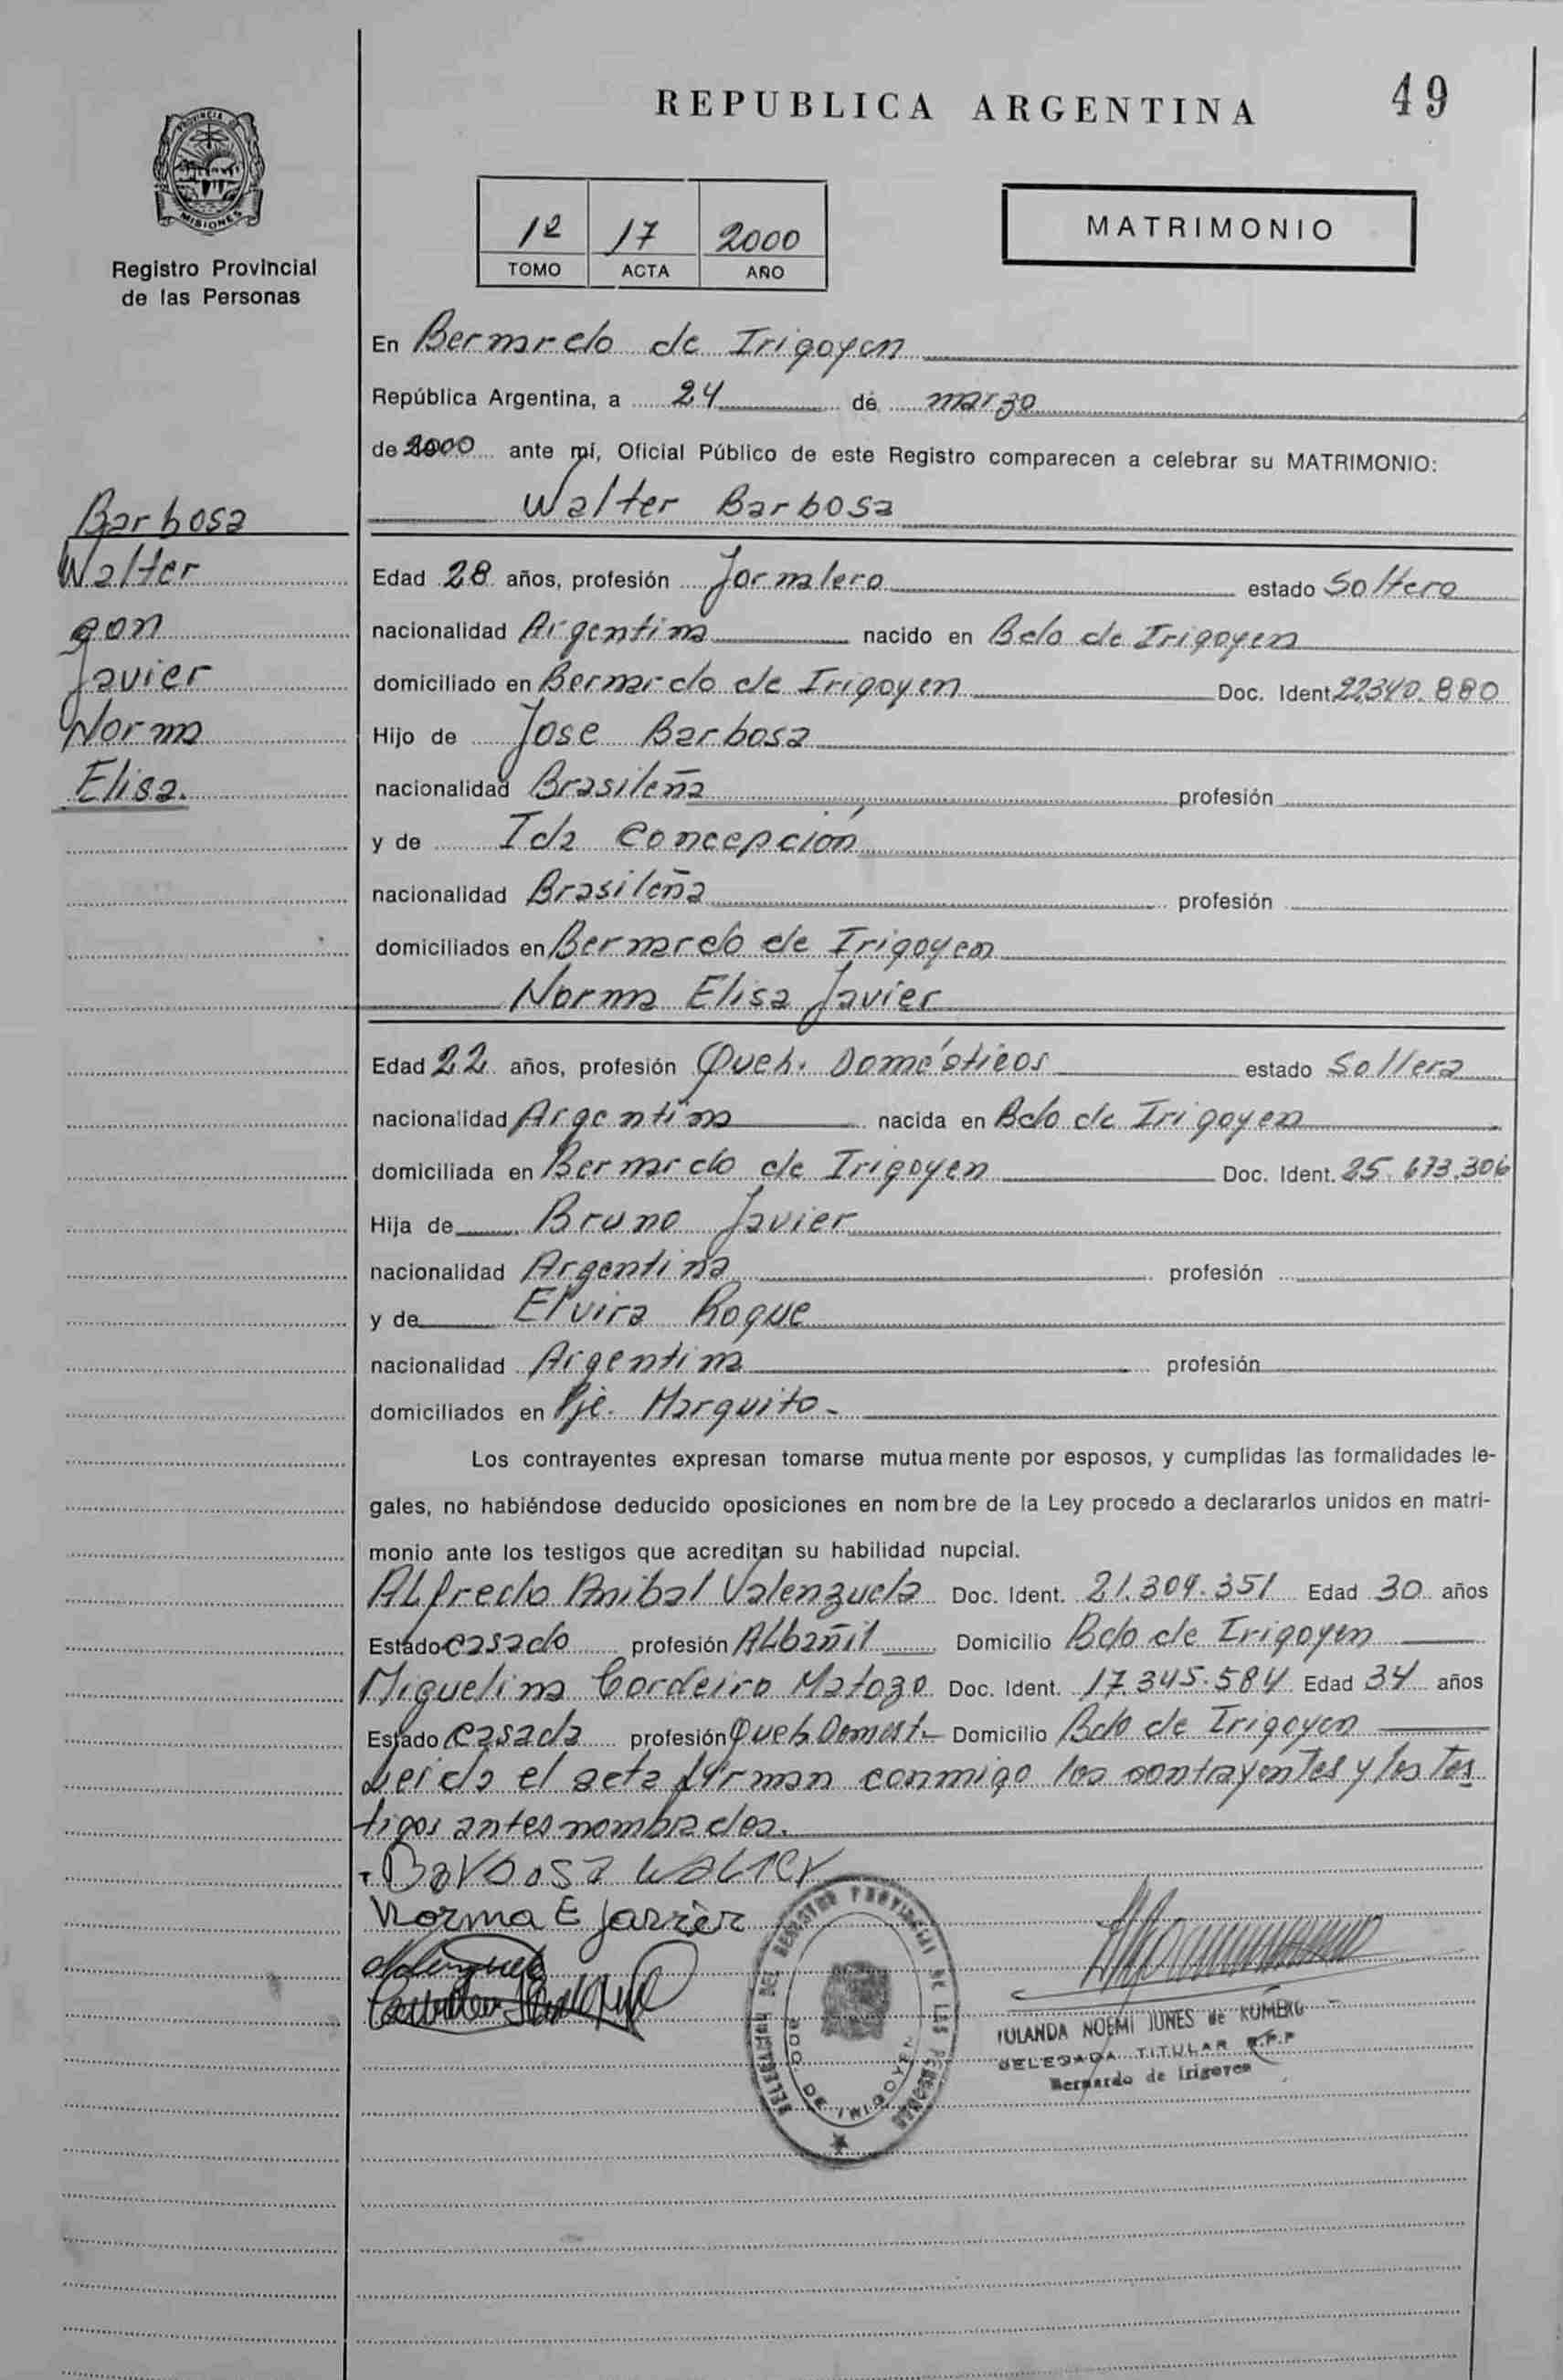 REPUBLICA ARGENTINA
49
PROVINCIA DE
MISIONES
Registro Provincial
de las Personas
12 17 2000
TOMO ACTA AÑO
MATRIMONIO
En Bernardo de Irigoyen
República Argentina, a 24 de marzo
de 2000 ante mí, Oficial Público de este Registro comparecen a celebrar su MATRIMONIO:
Walter Barbosa
Barbosa
Walter
con
Javier
Norma
Elisa.
Edad 28 años, profesión Jornalero estado Soltero
nacionalidad Argentina nacido en Bdo de Irigoyen
domiciliado en Bernardo de Irigoyen Doc. Ident. 22.340.880
Hijo de Jose Barbosa
nacionalidad Brasileña profesión
y de Ida Concepción
nacionalidad Brasileña profesión
domiciliados en Bernardo de Irigoyen
Norma Elisa Javier
Edad 22 años, profesión Queh. Domésticos estado Soltera
nacionalidad Argentina nacida en Bdo de Irigoyen
domiciliada en Bernardo de Irigoyen Doc. Ident. 25.673.306
Hija de Bruno Javier
nacionalidad Argentina profesión
y de Elvira Roque
nacionalidad Argentina profesión
domiciliados en Pje. Marquito-
Los contrayentes expresan tomarse mutuamente por esposos, y cumplidas las formalidades le-
gales, no habiéndose deducido oposiciones en nombre de la Ley procedo a declararlos unidos en matri-
monio ante los testigos que acreditan su habilidad nupcial.
Alfredo Anibal Valenzuela Doc. Ident. 21.309.351 Edad 30 años
Estado casado profesión Albañil Domicilio Bdo de Irigoyen
Miguelina Cordeiro Matozo Doc. Ident. 17.345.584 Edad 34 años
Estado casada profesión Queh Domést- Domicilio Bdo de Irigoyen
Leida el acta firman conmigo los contrayentes y los tes
tigos antes nombrados.
Barbosa Walter
Norma E Javier
DELEGACION DEL REGISTRO PROVINCIAL DE LAS PERSONAS
BDO. DE IRIGOYEN
NOEMI de ROMERO
DELEGADA TITULAR R.P.P
Bernardo de Irigoyen